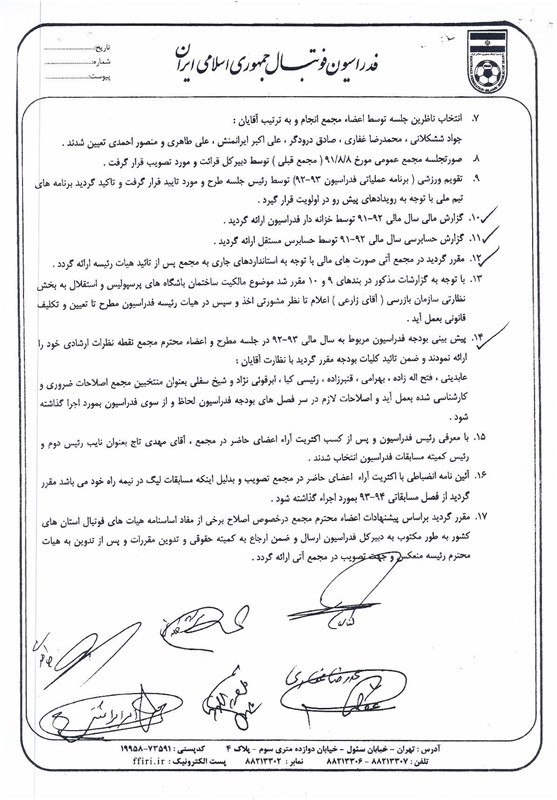 فدراسیون فوتبال جمهوری اسلامی ایران
تاریخ:
شماره:
پیوست:
۷. انتخاب ناظرین جلسه توسط اعضاء مجمع انجام و به ترتیب آقایان :
جواد ششکلانی ، محمدرضا غفاری ، صادق درودگر ، علی اکبر ایرانمنش ، علی طاهری و منصور احمدی تعیین شدند .
۸. صورتجلسه مجمع عمومی مورخ ۹۱/۸/۸ ( مجمع قبلی ) توسط دبیرکل قرائت و مورد تصویب قرار گرفت .
۹. تقویم ورزشی ( برنامه عملیاتی فدراسیون ۹۳-۹۲) توسط رئیس جلسه طرح و مورد تایید قرار گرفت و تاکید گردید برنامه های
تیم ملی با توجه به رویدادهای پیش رو در اولویت قرار گیرد .
۱۰. گزارش مالی سال مالی ۹۲-۹۱ توسط خزانه دار فدراسیون ارائه گردید .
۱۱. گزارش حسابرسی سال مالی ۹۲-۹۱ توسط حسابرس مستقل ارائه گردید .
۱۲. مقرر گردید در مجمع آتی صورت های مالی با توجه به استانداردهای جاری به مجمع پس از تائید هیات رئیسه ارائه گردد .
۱۳. با توجه به گزارشات مذکور در بندهای ۹ و ۱۰ مقرر شد موضوع مالکیت ساختمان باشگاه های پرسپولیس و استقلال به بخش
نظارتی سازمان بازرسی ( آقای زارعی ) اعلام تا نظر مشورتی اخذ و سپس در هیات رئیسه فدراسیون مطرح تا تعیین و تکلیف
قانونی بعمل آید .
۱۴. پیش بینی بودجه فدراسیون مربوط به سال مالی ۹۳-۹۲ در جلسه مطرح و اعضاء محترم مجمع نقطه نظرات ارشادی خود را
ارائه نمودند و ضمن تائید کلیات بودجه مقرر گردید با نظارت آقایان :
عابدینی ، فتح اله زاده ، بهرامی ، قنبرزاده ، رئیسی کیا ، ابرقوئی نژاد و شیخ سفلی بعنوان منتخبین مجمع اصلاحات ضروری و
کارشناسی شده بعمل آید و اصلاحات لازم در سر فصل های بودجه فدراسیون لحاظ و از سوی فدراسیون بمورد اجرا گذاشته
شود .
۱۵. با معرفی رئیس فدراسیون و پس از کسب اکثریت آراء اعضای حاضر در مجمع ، آقای مهدی تاج بعنوان نایب رئیس دوم و
رئیس کمیته مسابقات فدراسیون انتخاب شدند .
۱۶. آئین نامه انضباطی با اکثریت آراء اعضای حاضر در مجمع تصویب و بدلیل اینکه مسابقات لیگ در نیمه راه خود می باشد مقرر
گردید از فصل مسابقاتی ۹۴-۹۳ بمورد اجراء گذاشته شود .
۱۷. مقرر گردید براساس پیشنهادات اعضاء محترم مجمع درخصوص اصلاح برخی از مفاد اساسنامه هیات های فوتبال استان های
کشور به طور مکتوب به دبیرکل فدراسیون ارسال و ضمن ارجاع به کمیته حقوقی و تدوین مقررات و پس از تدوین به هیات
محترم رئیسه منعکس و جهت تصویب در مجمع آتی ارائه گردد .
محمدرضا غفاری
آدرس : تهران - خیابان سئول - خیابان دوازده متری سوم - پلاک ۴ کدپستی : ۷۳۵۹۱-۱۹۹۵۸
تلفن : ۸۸۲۱۳۳۰۷ - ۸۸۲۱۳۳۰۶ نمابر : ۸۸۲۱۳۳۰۲ پست الکترونیک : ffiri.ir